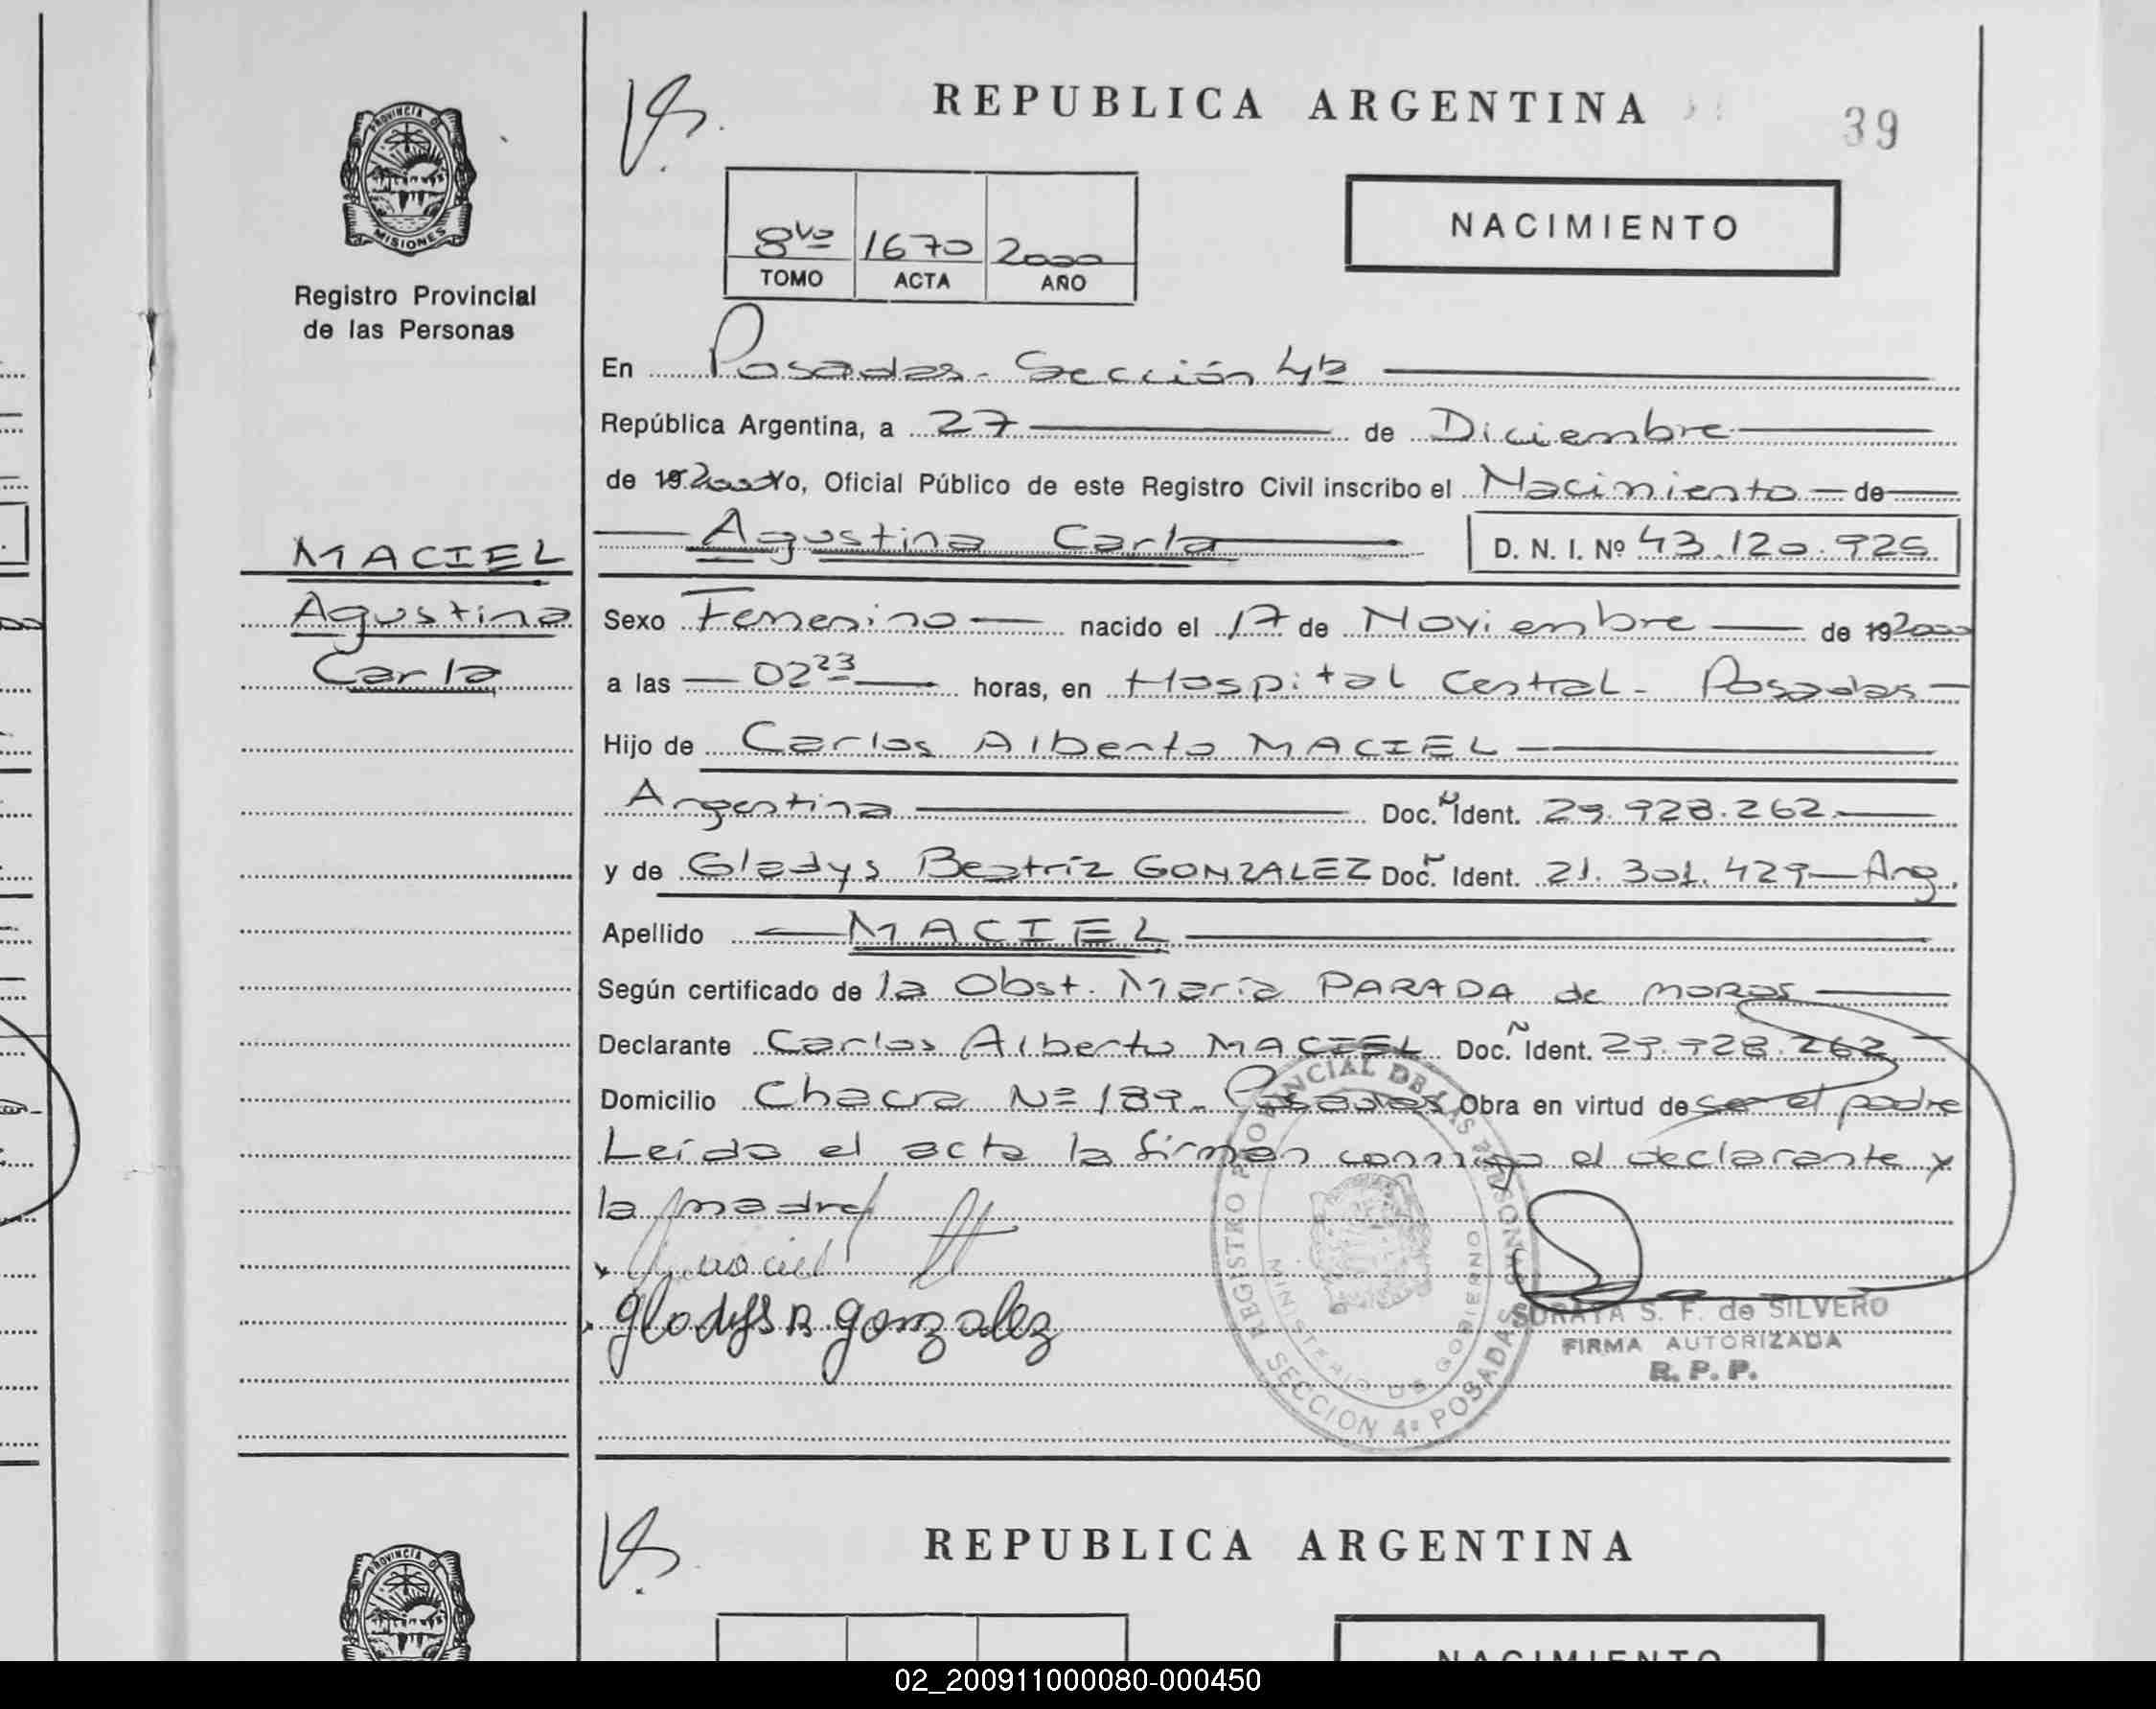 REPUBLICA ARGENTINA
39
PROVINCIA DE
MISIONES
Registro Provincial
de las Personas
8vo 1670 2000
TOMO ACTA AÑO
NACIMIENTO
En Posadas - Sección 4ta
República Argentina, a 27 de Diciembre
de 19 2000 Yo, Oficial Público de este Registro Civil inscribo el Nacimiento de
Agustina Carla D. N. I. Nº 43.120.925
MACIEL
Agustina
Carla
Sexo Femenino nacido el 17 de Noviembre de 19 2000
a las 02 23 horas, en Hospital Central - Posadas
Hijo de Carlos Alberto MACIEL
Argentina Doc. Ident. 29.928.262
y de Gladys Beatríz GONZALEZ Doc. Ident. 21.301.429 - Arg.
Apellido MACIEL
Según certificado de la Obst. María PARADA de MORAS
Declarante Carlos Alberto MACIEL Doc. Ident. 29.928.262
Domicilio Chacra Nº 189 - Posadas Obra en virtud de ser el padre
Leída el acta la firman conmigo el declarante y
la madre
Maciel
Gladys B gonzalez
REGISTRO PROVINCIAL DE LAS PERSONAS
MINISTERIO DE GOBIERNO
SECCION 4ª POSADAS
SORAYA S. F. de SILVERO
FIRMA AUTORIZADA
R. P. P.
REPUBLICA ARGENTINA
PROVINCIA DE
NACIMIENTO
02_200911000080-000450